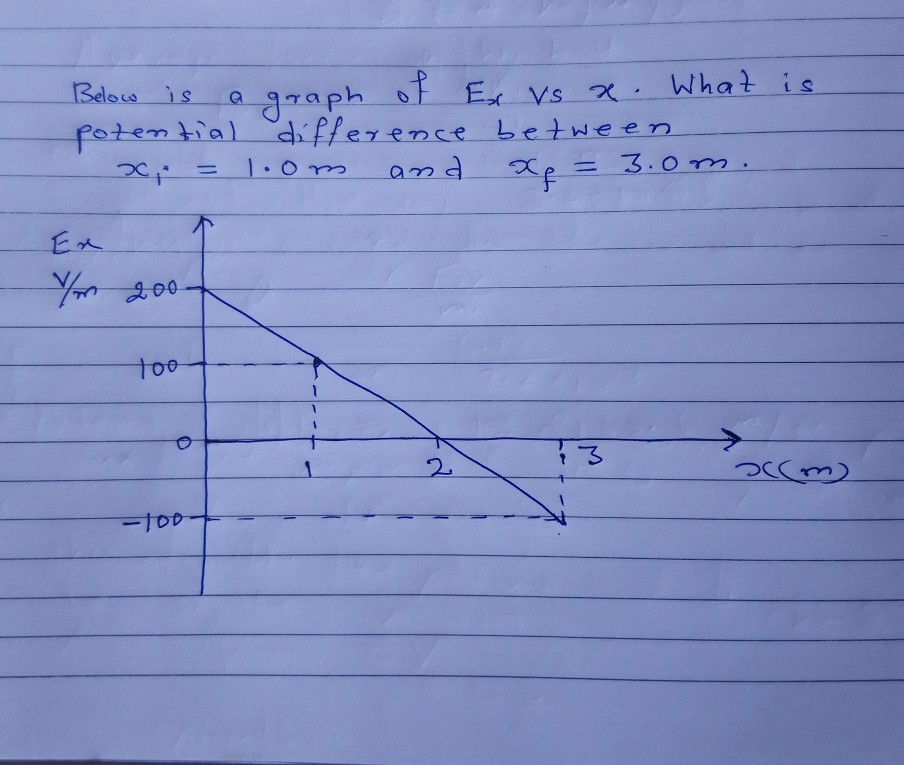 Below is a graph of Ex vs x. What is
potential difference between
xi = 1.0 m and xf = 3.0 m.
Ex
V/m 200
100
0
1 2 3
x(m)
-100